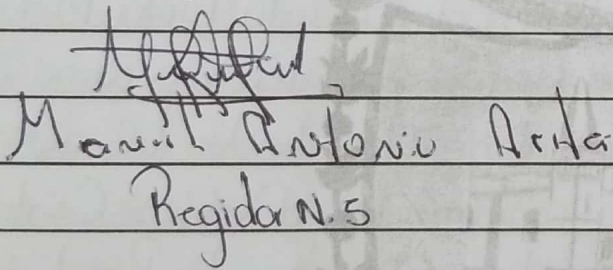 Manuel Antonio Arita
Regidor N. 5